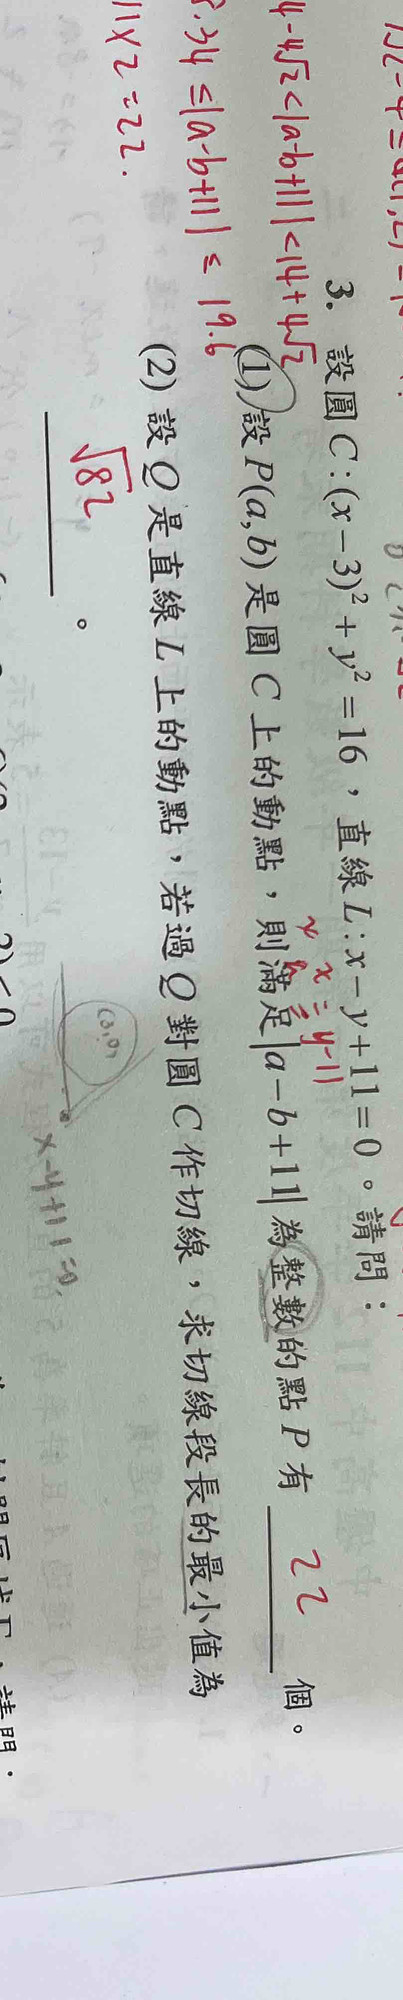 3. 設圓 C:(x-3)²+y²=16，直線 L:x-y+11=0。請問：
x=y-11
4-4√2<|a-b+11|<14+4√2
(1) 設 P(a,b) 是圓 C 上的動點，則滿足 |a-b+11| 為整數的點 P 有 22 個。
.34≤|a-b+11|≤19.6
(2) 設 Q 是直線 L 上的動點，若過 Q 對圓 C 作切線，求切線段長的最小值為
11×2=22.
√82 。
(3,0)
x-y+11=0